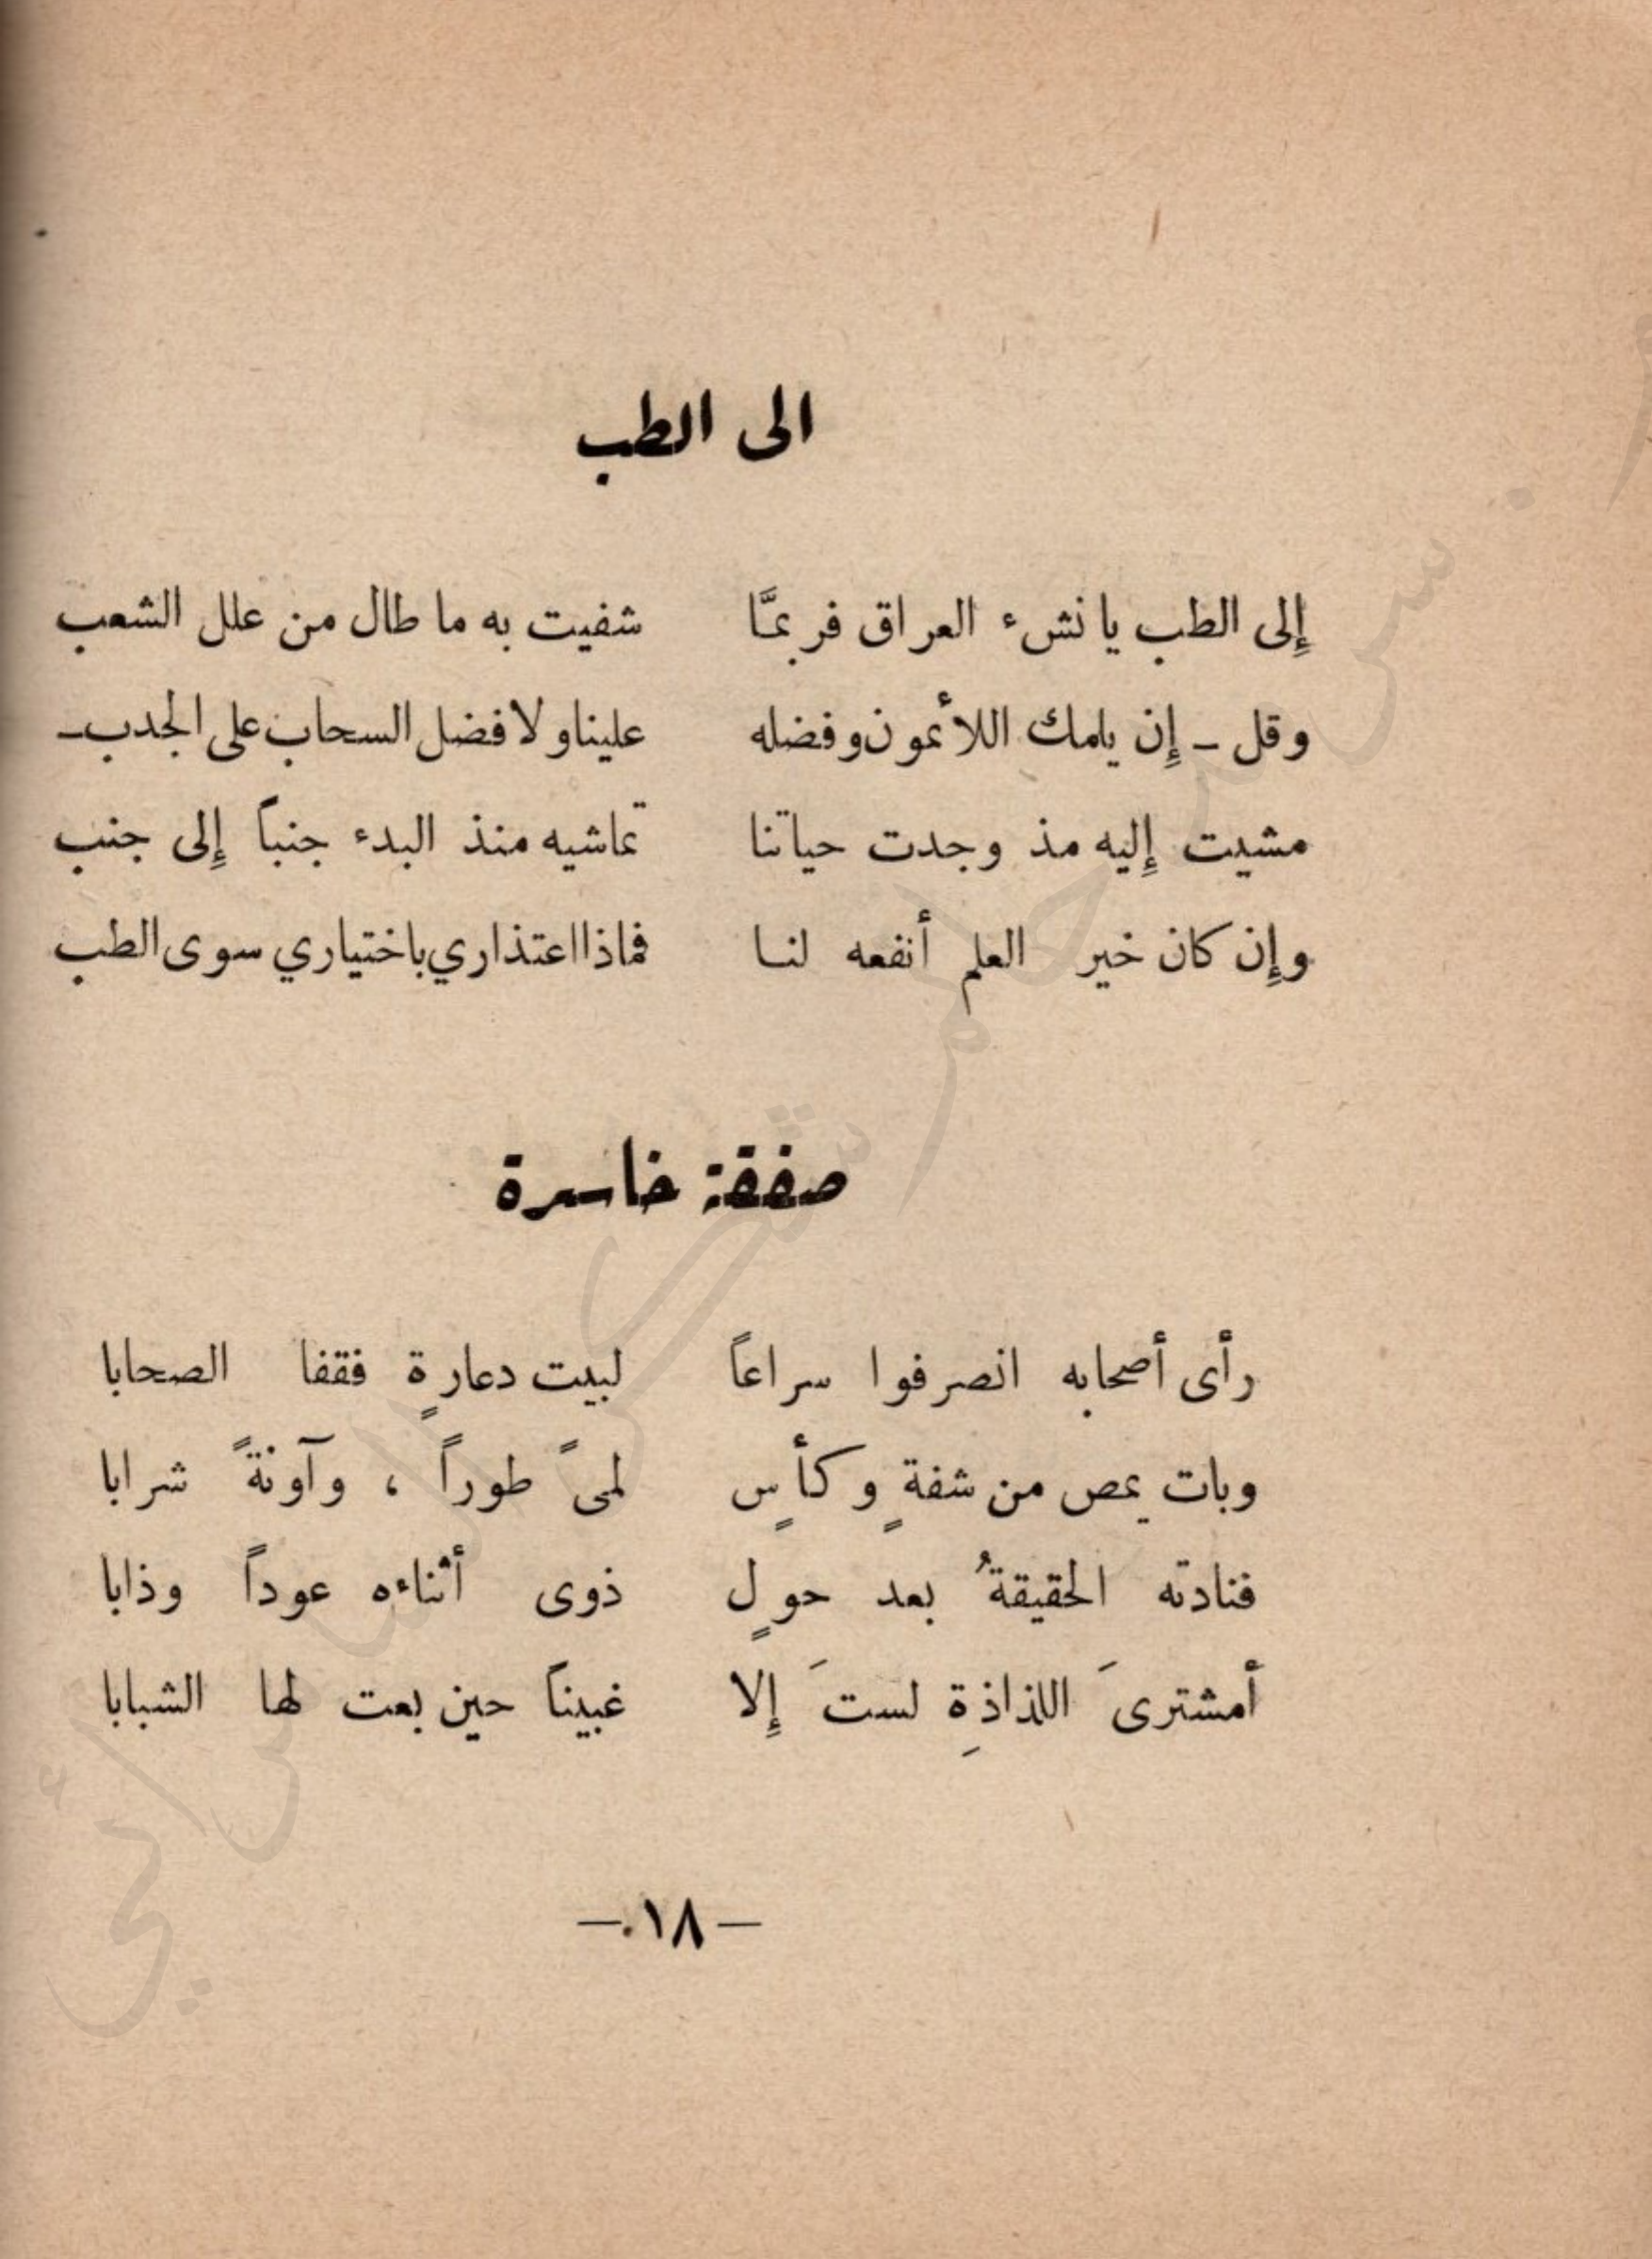 الى الطب
إِلى الطب يا نشء العراق فربمَّا شفيت به ما طال من علل الشعب
وقل ـ إِن يلمك اللائمون وفضله علينا ولا فضل السحاب على الجدب ـ
مشيت إِليه مذ وجدت حياتنا تماشيه منذ البدء جنباً إِلى جنب
وإِن كان خير العلم أنفعه لنا فماذا اعتذاري باختياري سوى الطب
صفقة خاسرة
رأى أصحابه انصرفوا سراعاً لبيت دعارةٍ فقفا الصحابا
وبات يمص من شفةٍ وكأسٍ لمىً طوراً ، وآونةً شرابا
فنادته الحقيقةُ بعد حولٍ ذوى أثناءه عوداً وذابا
أمشتريَ اللذاذةِ لستَ إِلا غبيناً حين بعت لها الشبابا
— ١٨ —